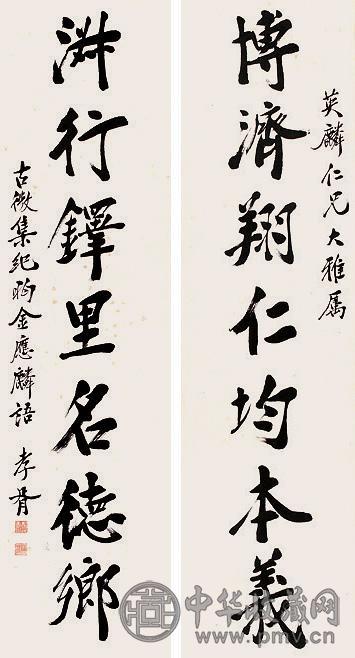 英麟仁兄大雅属
博濟翔仁均本義
行鐸里名德鄉
古微集紀昀金應麟語 孝胥
中华收藏网
www.pmv.cn